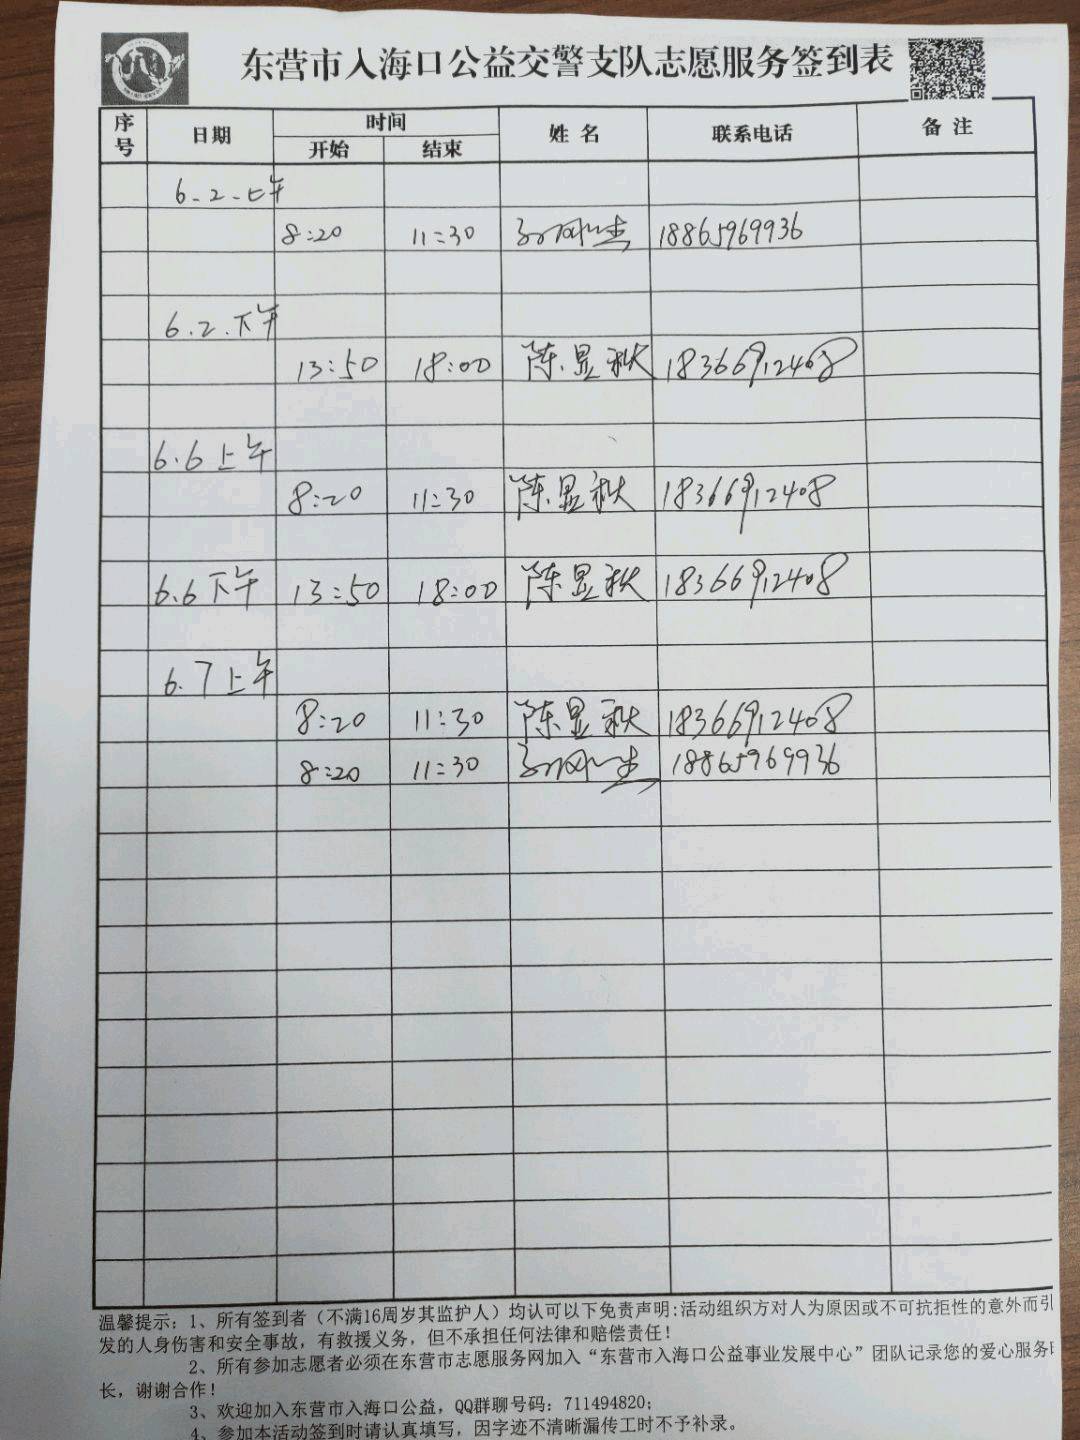 东营市入海口公益交警支队志愿服务签到表
序号 日期 时间 开始 结束 姓 名 联系电话 备 注
6.2.上午
8:20 11:30 18865969936
6.2.下午
13:50 18:00 陈显秋 18366912408
6.6上午
8:20 11:30 陈显秋 18366912408
6.6下午 13:50 18:00 陈显秋 18366912408
6.7上午
8:20 11:30 陈显秋 18366912408
8:20 11:30 18865969936
温馨提示：1、所有签到者（不满16周岁其监护人）均认可以下免责声明:活动组织方对人为原因或不可抗拒性的意外而引
发的人身伤害和安全事故，有救援义务，但不承担任何法律和赔偿责任！
2、所有参加志愿者必须在东营市志愿服务网加入“东营市入海口公益事业发展中心”团队记录您的爱心服务
长，谢谢合作！
3、欢迎加入东营市入海口公益，QQ群聊号码：711494820；
4、参加本活动签到时请认真填写，因字迹不清晰漏传工时不予补录。